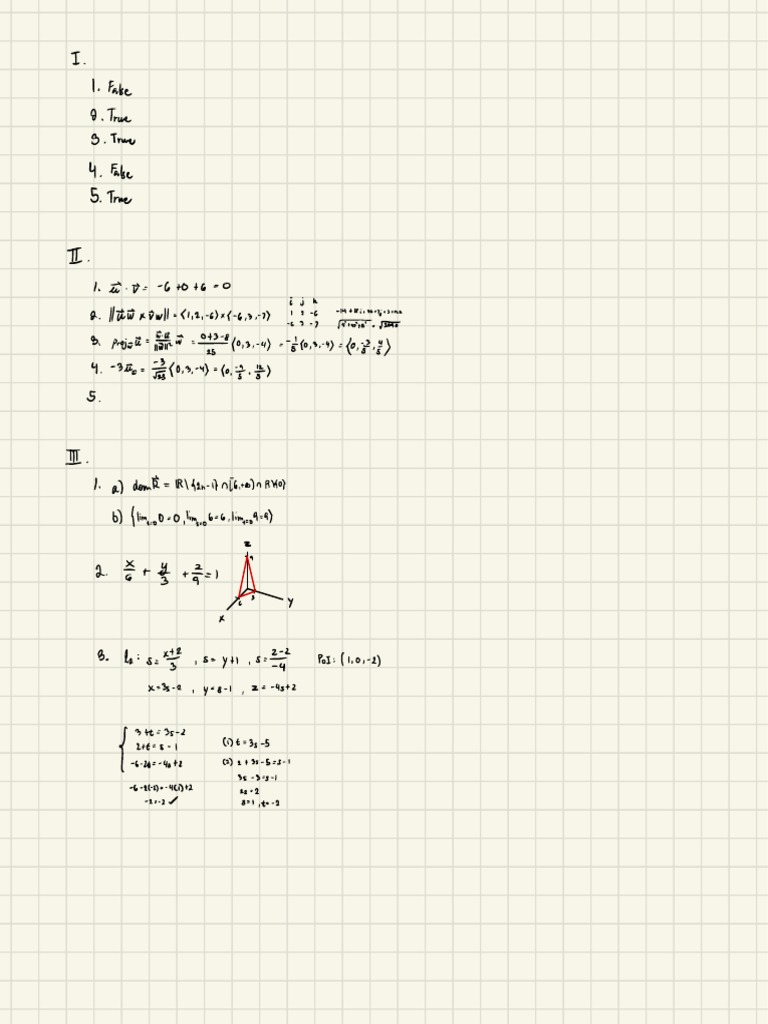 I.
1. False
2. True
3. True
4. False
5. True
II.
1. u⃗ · v⃗ = -6 + 0 + 6 = 0
2. ||u⃗w⃗ × v⃗w⃗|| = ⟨1, 2, -6⟩ × ⟨-6, 3, -7⟩
i j k
1 2 -6
-6 3 -7
3. proj u⃗ = w⃗ = 0+3-8/25 ⟨0, 3, -4⟩ = -1/5 ⟨0, 3, -4⟩ = ⟨0, -3/5, 4/5⟩
4. -3u⃗ = -3/√25 ⟨0, 3, -4⟩ = ⟨0, -9/5, 12/5⟩
5.
III.
1. a) dom R⃗ = ℝ \ {2n-1} ∩ [-6, +∞) ∩ ℝ\{0}
b) ⟨lim 0 = 0, lim 6 = 6, lim 9 = 9⟩
2. x/6 + y/3 + z/9 = 1
z
9
6 3
y
x
3. l₂: s = x+2/3 , s = y+1 , s = z-2/-4 PoI: (1, 0, -2)
x = 3s-2 , y = s-1 , z = -4s+2
3+t = 3s-2
2+t = s-1 (1) t = 3s-5
-6-2t = -4s+2 (2) 2+3s-5 = s-1
3s-3 = s-1
-6-2(-2) = -4(1)+2 2s = 2
-2 = -2 ✓ s = 1, t = -2